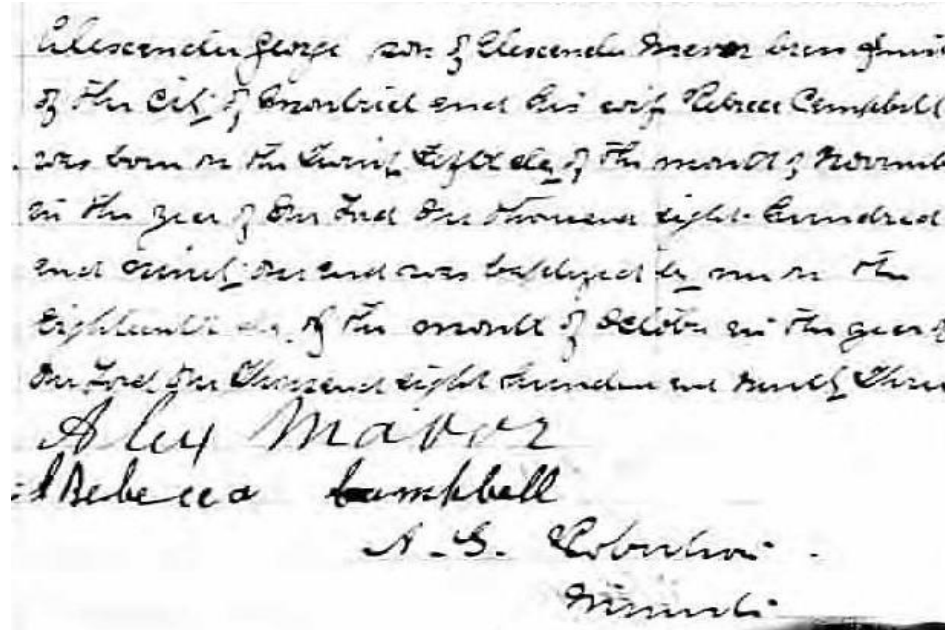 Alexander George son of Alexander Mavor brass finis
of the City of Montreal and his wife Rebecca Campbell
was born on the Twenty Eighth day of the month of Novemb
in the year of Our Lord One thousand eight hundred
and ninety one and was baptized by me on the
Eighteenth day of the month of October in the year of
Our Lord One Thousand eight hundred and ninety Three
Alex Mavor
Rebecca Campbell
A. G. Robertson
Minister